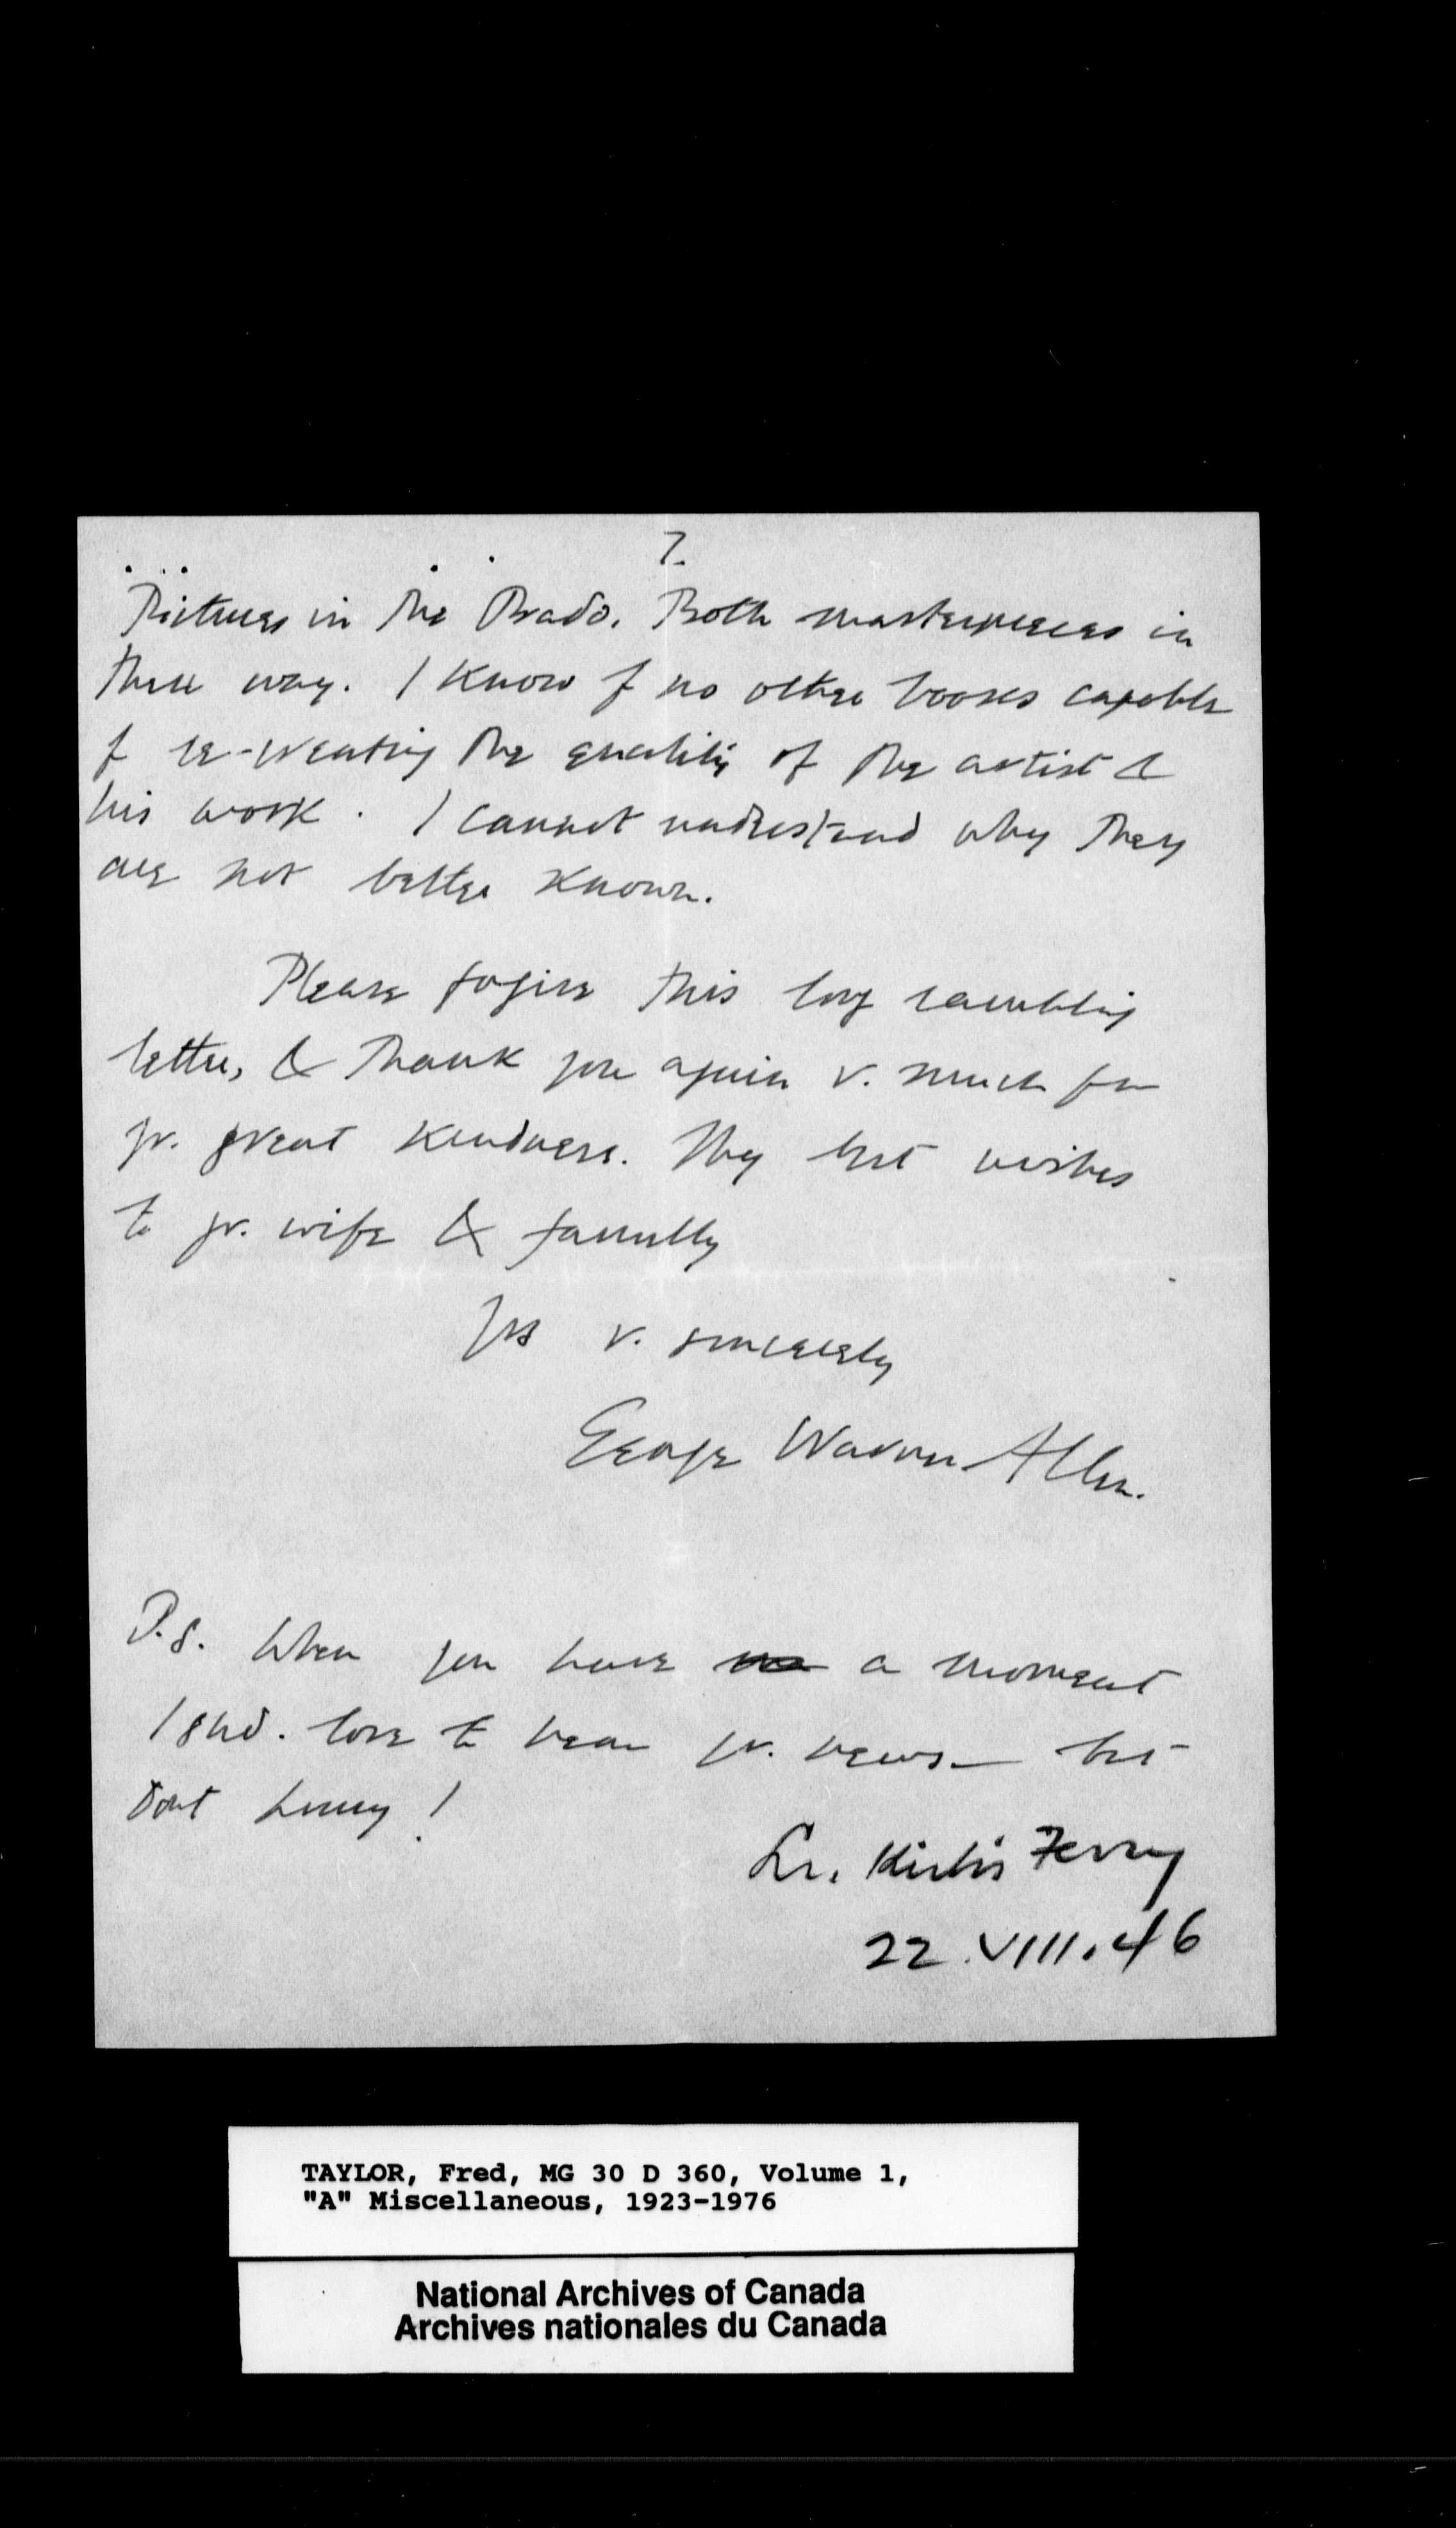 7.
Pictures in the Prado. Both masterpieces in
their way. I know of no other books capable
of re-creating the quality of the artist &
his work. I cannot understand why they
are not better known.
Please forgive this long rambling
letter, & thank you again v. much for
yr. great kindness. My best wishes
to yr. wife & family
Yrs v. sincerely
George Warren Allen.
P.S. When you have a moment
I shd. love to hear yr. news — but
dont hurry!
22.VIII.46
TAYLOR, Fred, MG 30 D 360, Volume 1,
"A" Miscellaneous, 1923-1976
National Archives of Canada
Archives nationales du Canada